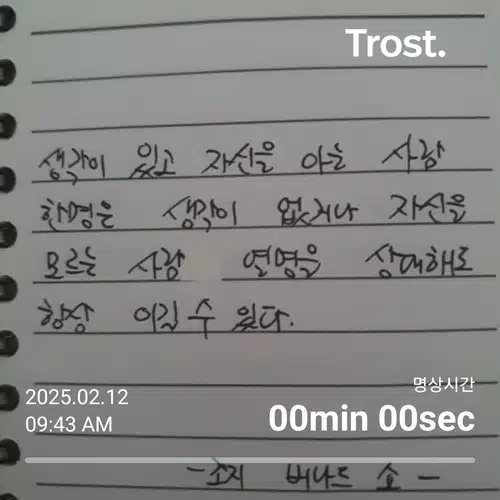 Trost.
생각이 있고 자신을 아는 사람
한명은 생각이 없거나 자신을
모르는 사람 열명을 상대해도
항상 이길 수 있다.
2025.02.12
09:43 AM
명상시간
00min 00sec
-조지 버나드 쇼-